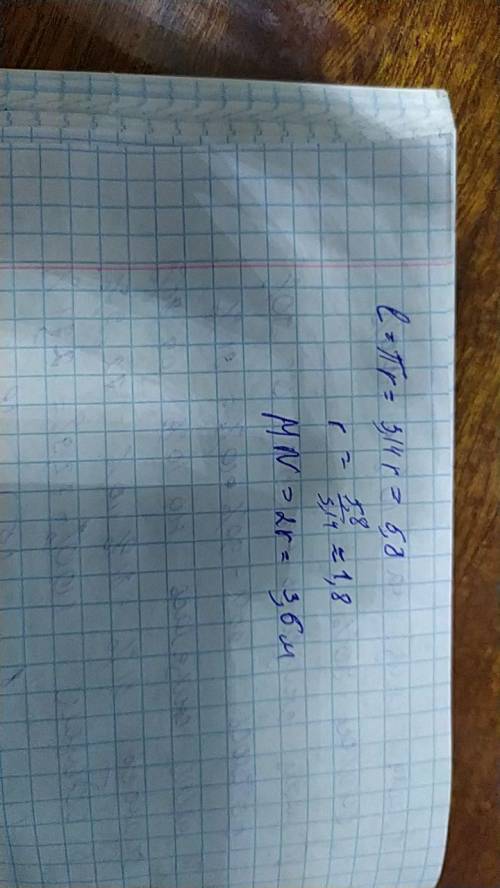 l = πr = 3,14 r = 5,8
r = 5,8 / 3,14 ≈ 1,8
MN = 2r = 3,6 м